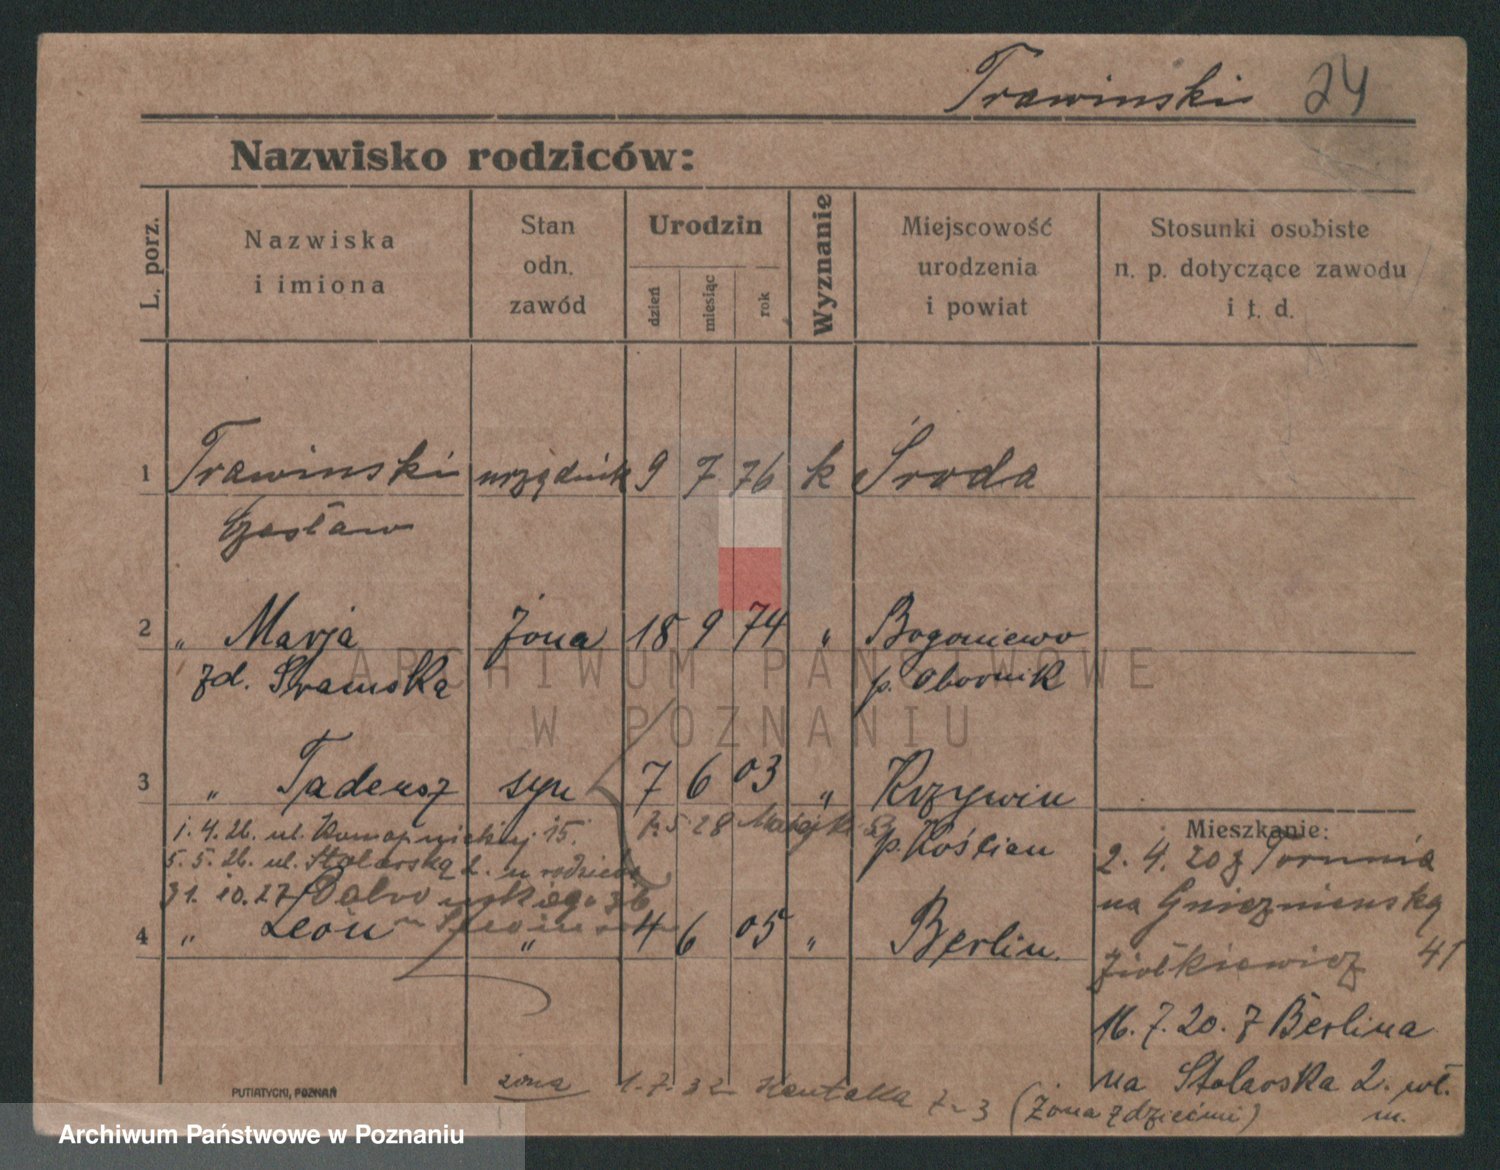 Trawinski 24
Nazwisko rodziców:
L. porz.
Nazwiska
i imiona
Stan
odn.
zawód
Urodzin
dzień
miesiąc
rok
Wyznanie
Miejscowość
urodzenia
i powiat
Stosunki osobiste
n. p. dotyczące zawodu
i t. d.
1 Trawinski urzędnik 9 7 76 k Środa
Czesław
2 „ Marja żona 18 9 74 „ Bogoniewo
zd. p. Obornik
3 „ Tadeusz syn 7 6 03 „ Krzywin
p. Kościan
1.4.26. ul. 15.
7.5 28
5.5.26. ul. Stolarską 2. u rodziców
31.10.27
4 „ Leon „ 4 6 05 „ Berlin.
Mieszkanie:
2. 4. 20 z Torunia
na Gnieznienską
Ziółkiewicz 41
16. 7. 20. z Berlina
na Stolarska 2. wł.
m.
żona 1.7.32 Kantaka 7-3 (żona z dziećmi)
PUTIATYCKI, POZNAŃ
ARCHIWUM PAŃSTWOWE
W POZNANIU
Archiwum Państwowe w Poznaniu